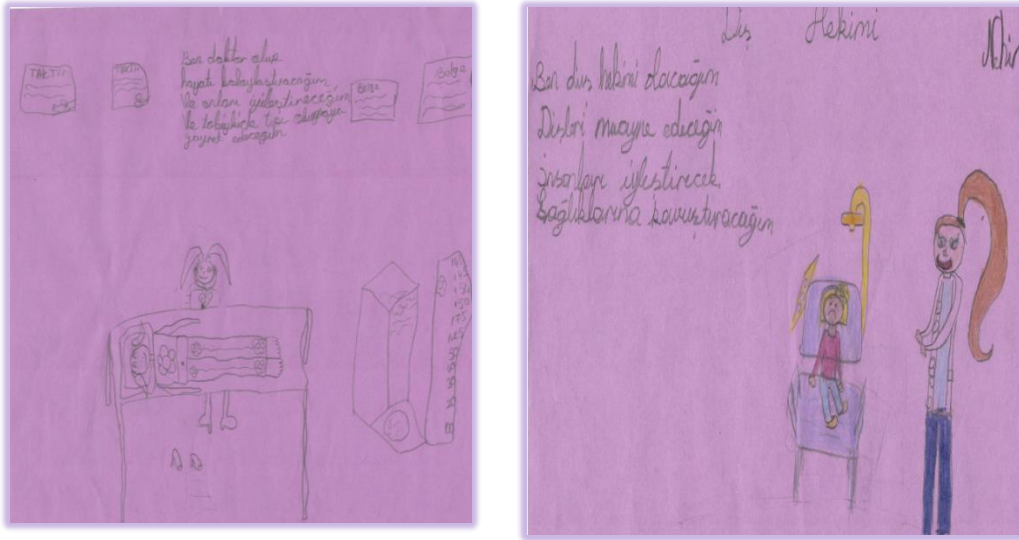 TAKTİR
Ben doktor olup
hayatı kolaylaştıracağım
Ve onları iyileştireceğim
Ve tabiykide tıpı olmaya
gayret edeceğim
Belge
Belge
Diş Hekimi
Ben diş hekimi olacağım
Dişleri muayne edeceğim
İnsanları iyileştirecek,
Sağlıklarına kavuşturacağım